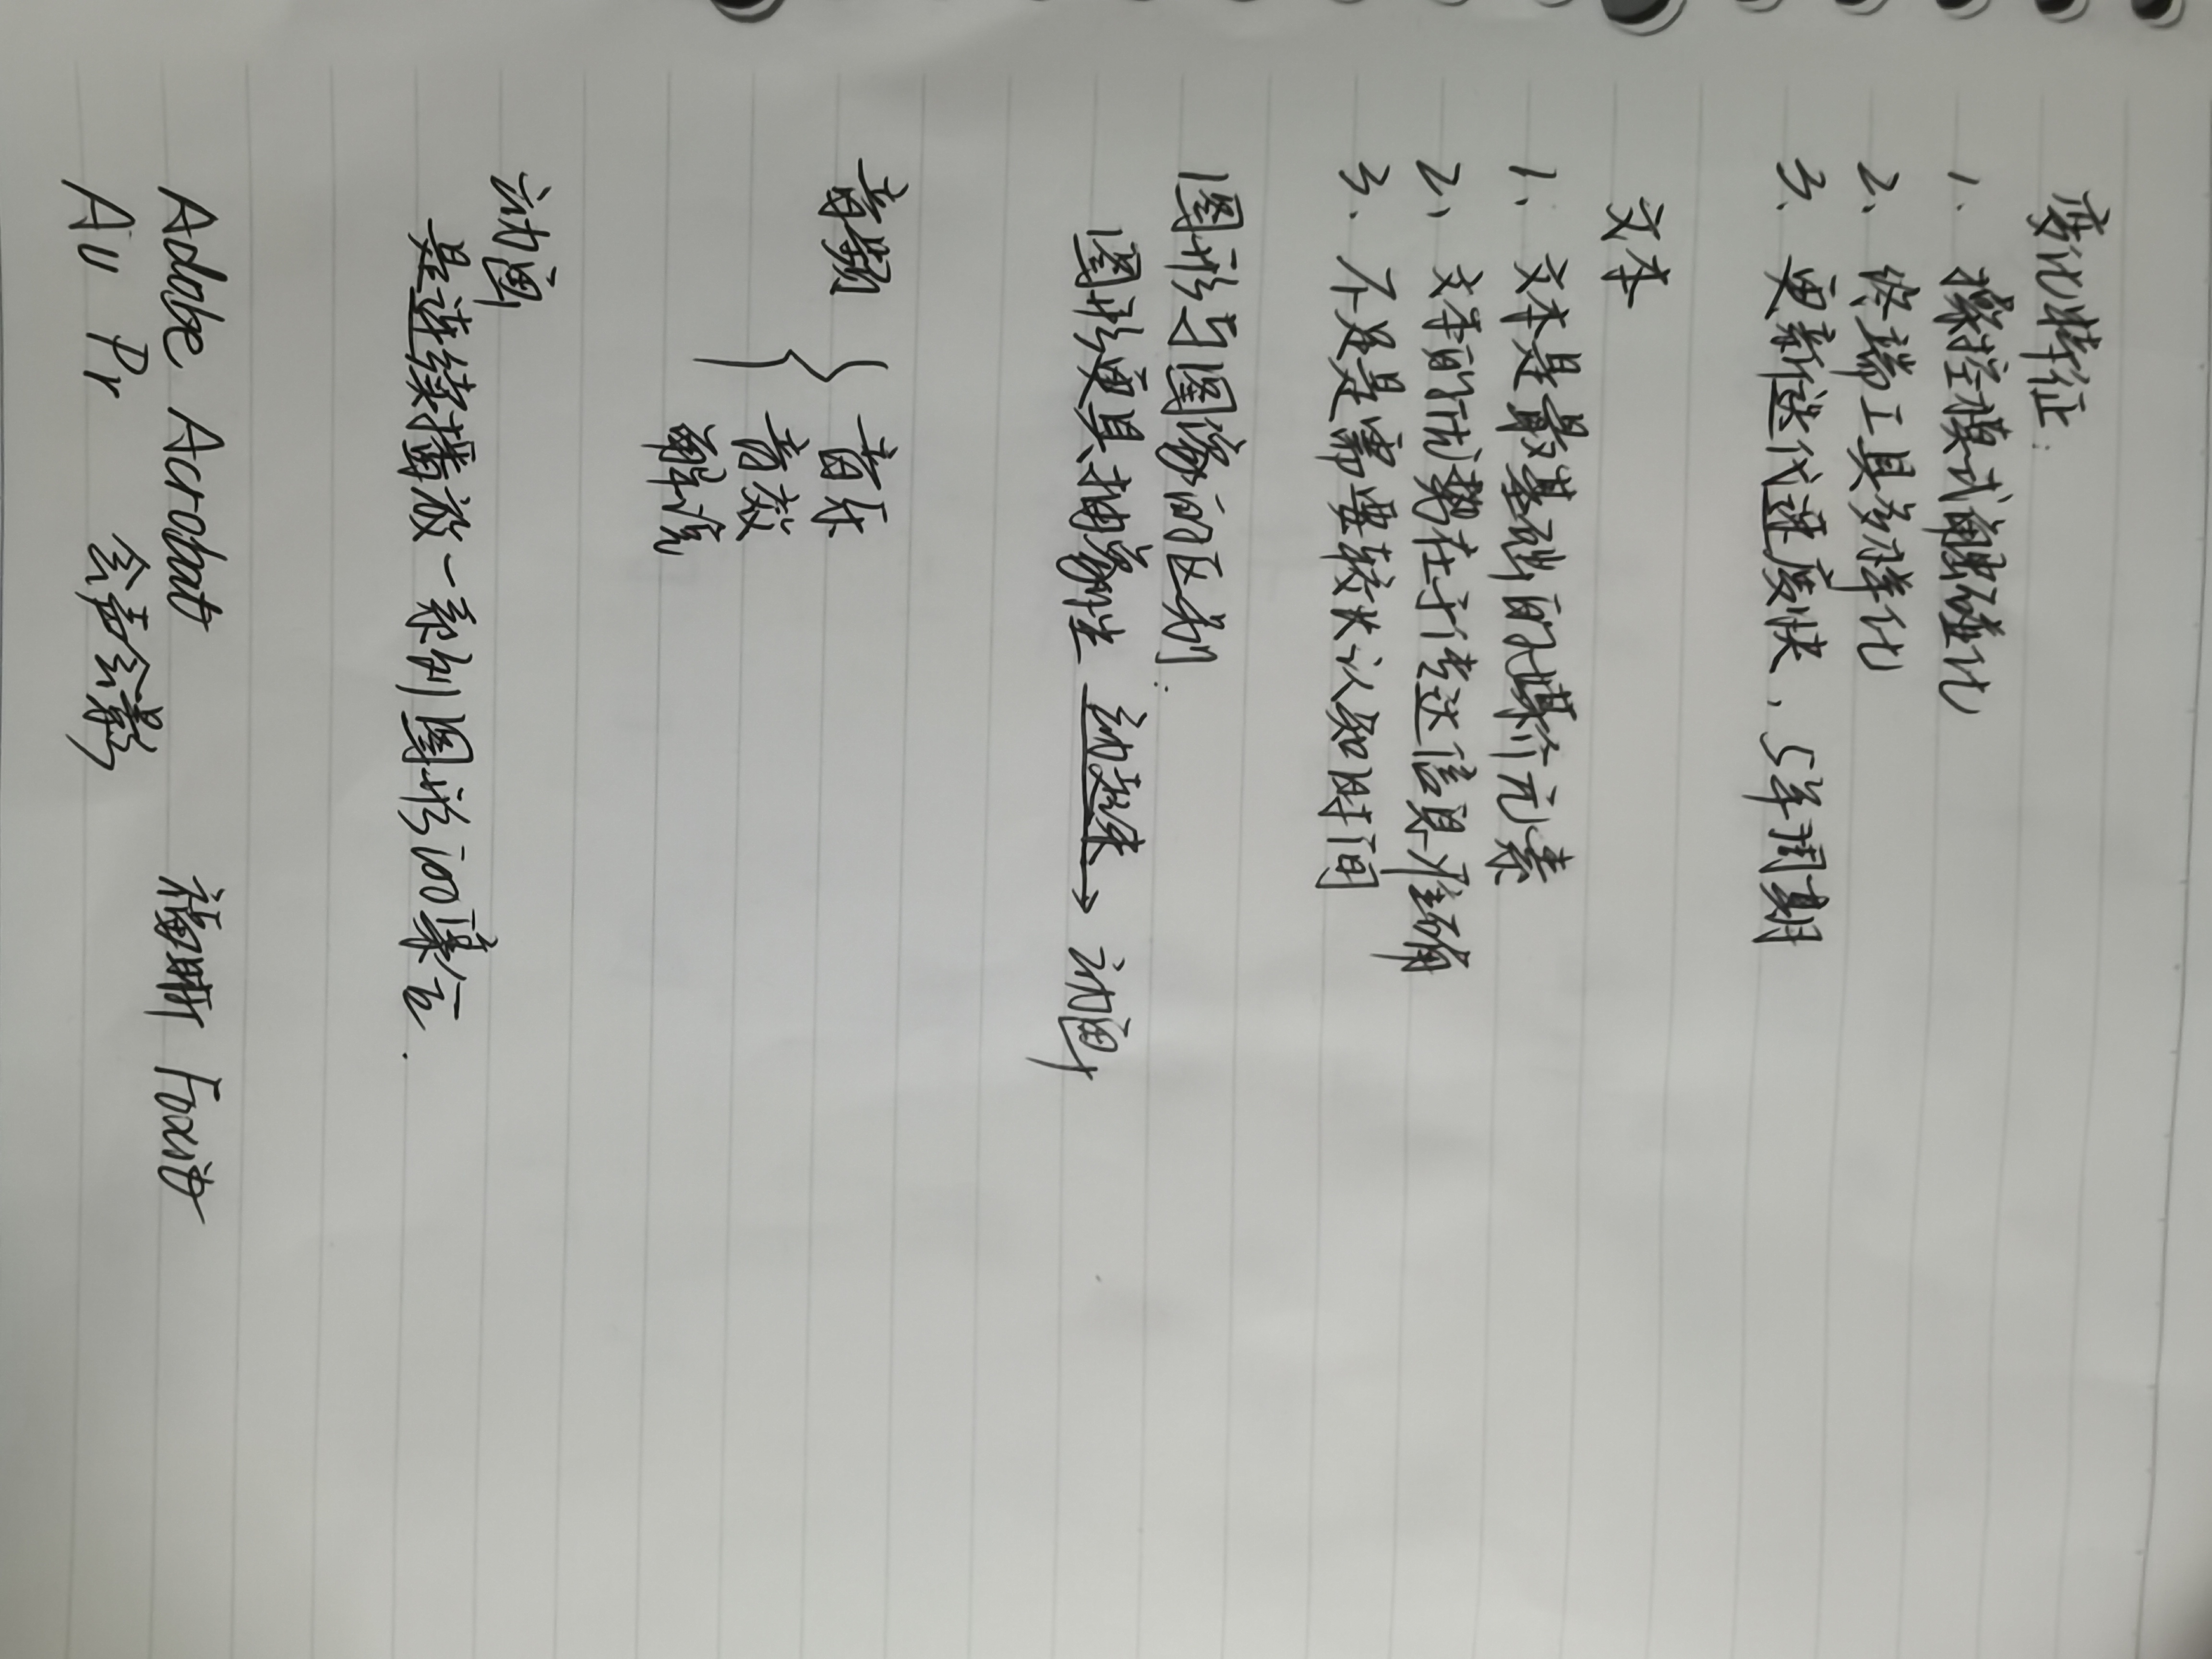 变化特征:
1、操控模式触碰化
2、终端工具多样化
3、更新迭代速度快、5年周期
文本
1、文本是最基础的媒介元素
2、文本的优势在于传达信息准确
3、不足是需要较长认知时间
图形与图像的区别:
图形更具抽象性 动起来→ 动画
音频 { 音乐
音效
解说
动画
是连续播放一系列图形的集合.
Adobe Acrobat 福昕 Foxit
Au Pr 会声会影